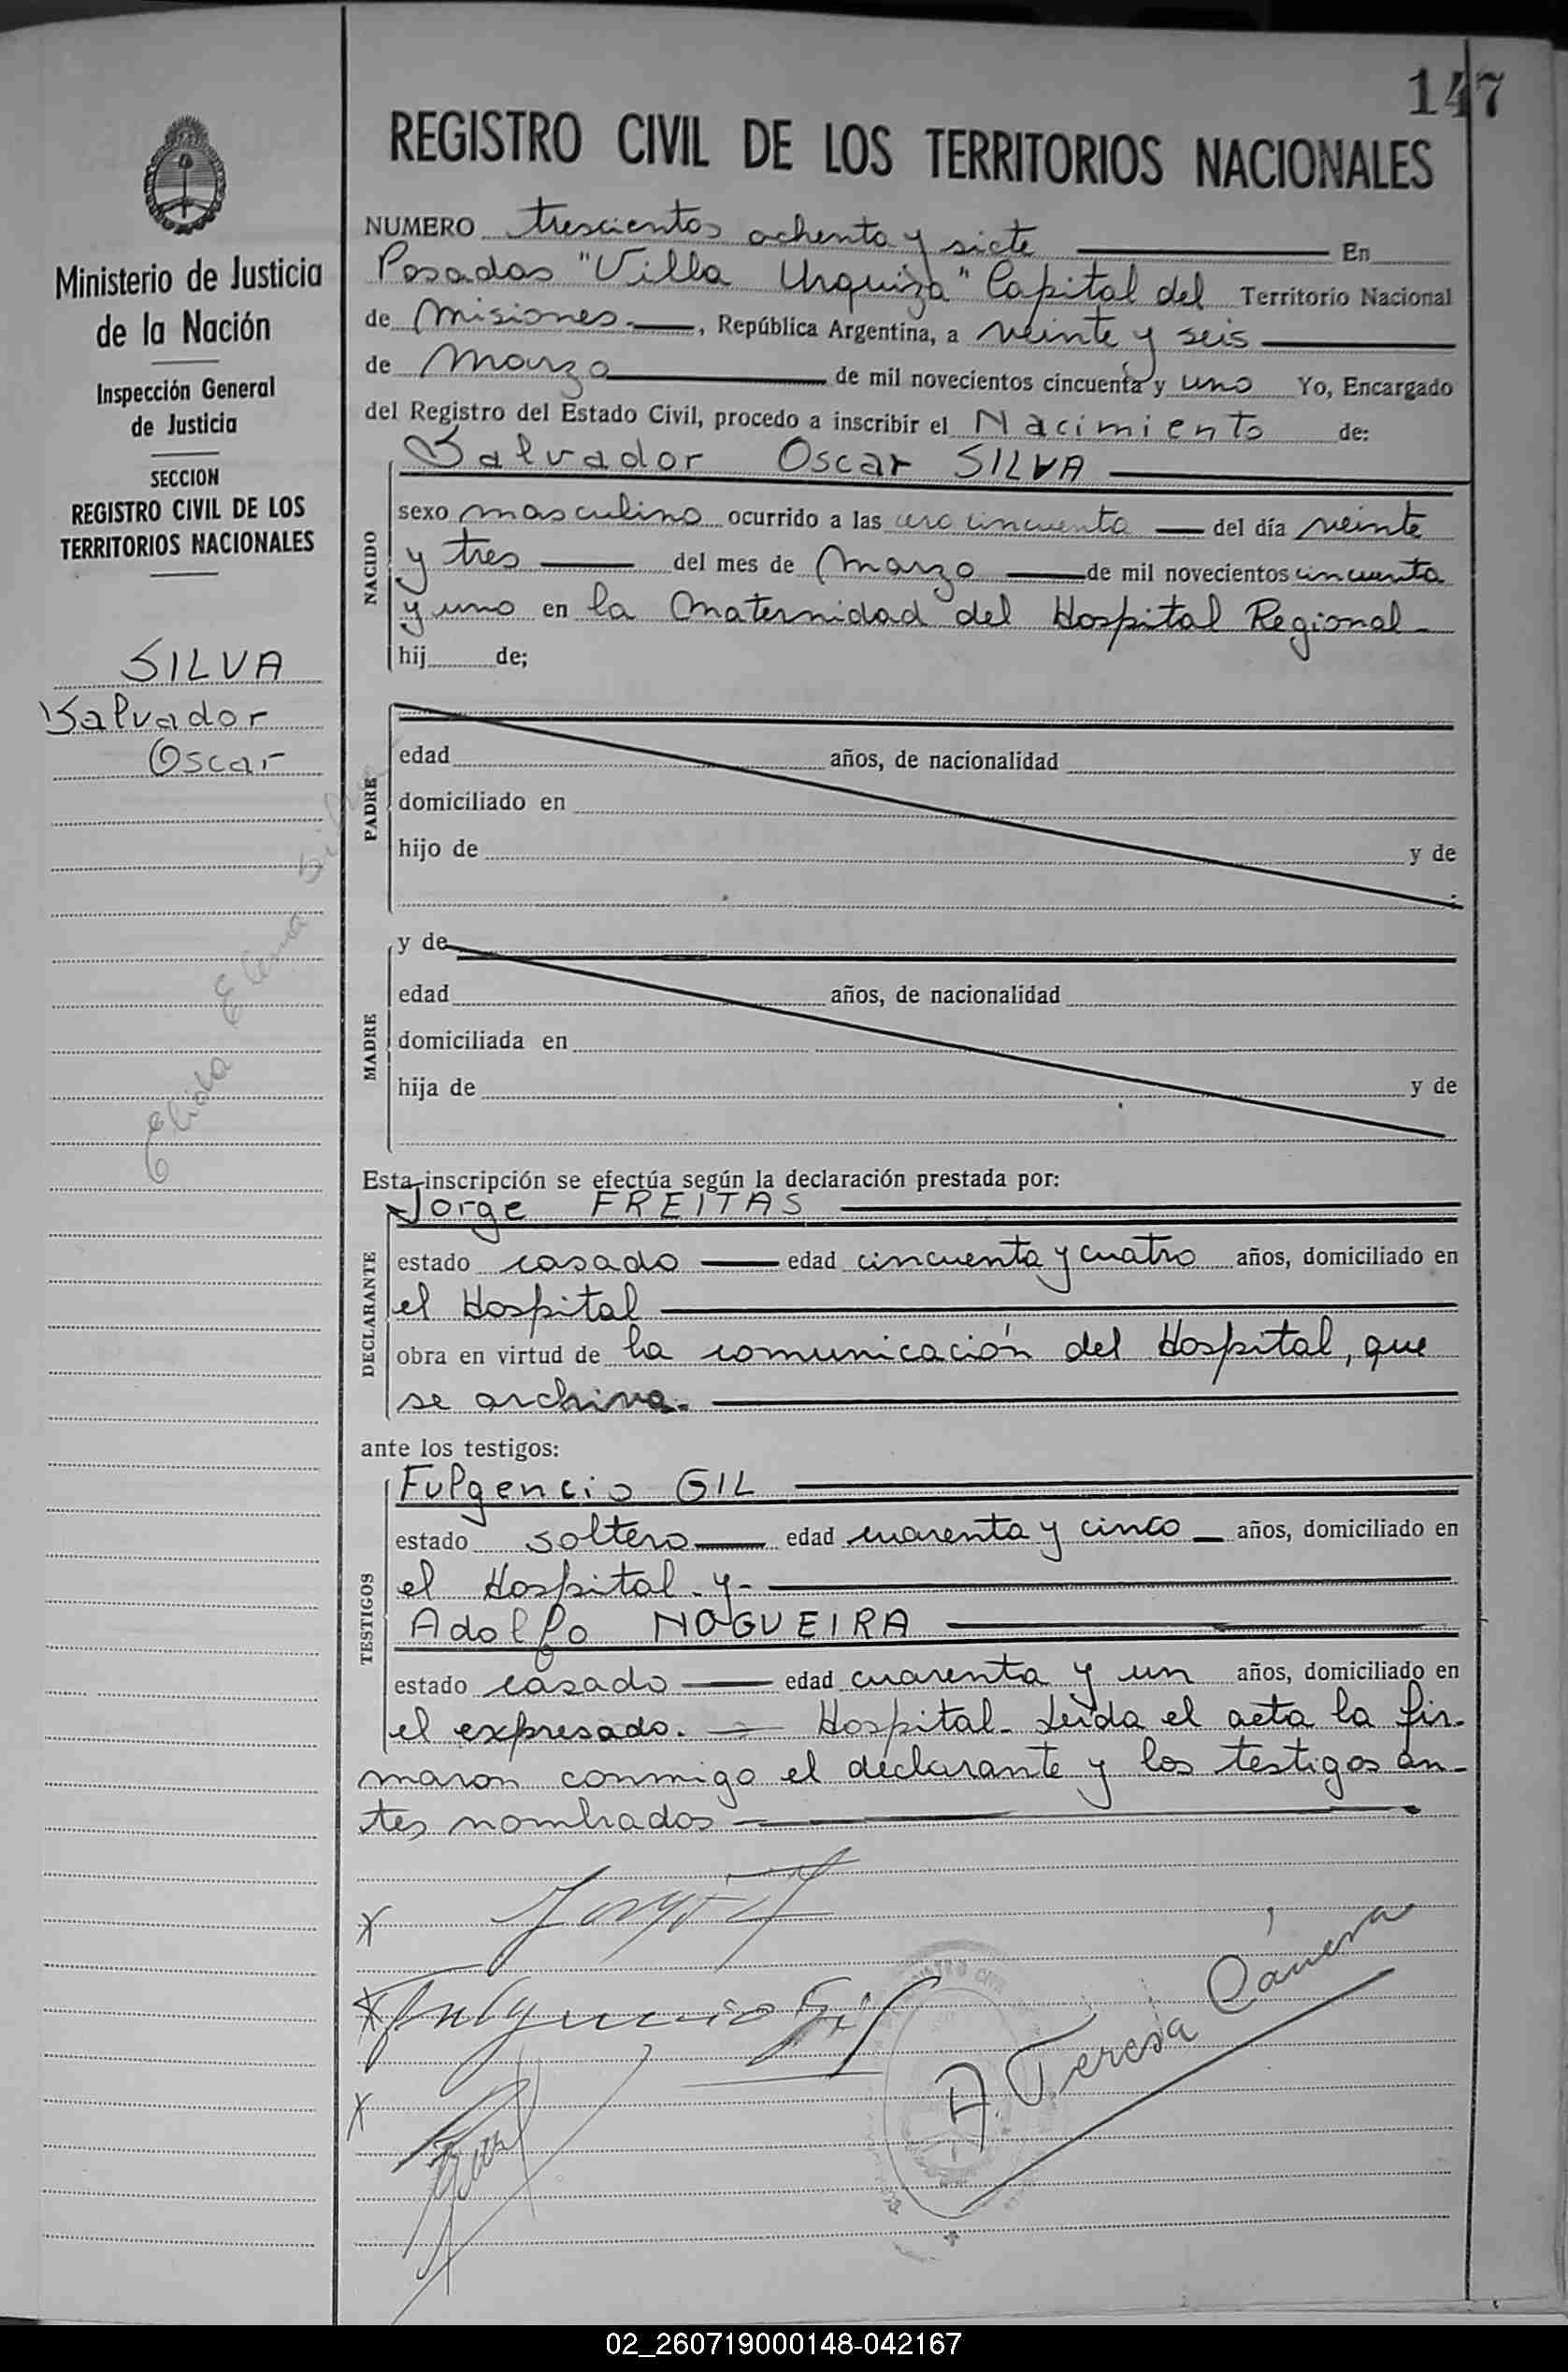 147
REGISTRO CIVIL DE LOS TERRITORIOS NACIONALES
Ministerio de Justicia
de la Nación
Inspección General
de Justicia
SECCION
REGISTRO CIVIL DE LOS
TERRITORIOS NACIONALES
SILVA
Salvador
Oscar
Elida Elena Silva
NUMERO trescientos ochenta y siete En
Posadas "Villa Urquiza" Capital del Territorio Nacional
de Misiones.—, República Argentina, a veinte y seis
de Marzo de mil novecientos cincuenta y uno Yo, Encargado
del Registro del Estado Civil, procedo a inscribir el Nacimiento de:
Salvador Oscar SILVA
NACIDO
sexo masculino ocurrido a las cero cincuenta — del día veinte
y tres — del mes de Marzo — de mil novecientos cincuenta
y uno en la Maternidad del Hospital Regional_
hij de;
PADRE
edad años, de nacionalidad
domiciliado en
hijo de y de
MADRE
y de
edad años, de nacionalidad
domiciliada en
hija de y de
Esta inscripción se efectúa según la declaración prestada por:
Jorge FREITAS
DECLARANTE
estado casado — edad cincuenta y cuatro años, domiciliado en
el Hospital
obra en virtud de la comunicación del Hospital, que
se archiva.
ante los testigos:
Fulgencio GIL
TESTIGOS
estado soltero — edad cuarenta y cinco — años, domiciliado en
el Hospital - y -
Adolfo NOGUEIRA
estado casado — edad cuarenta y un años, domiciliado en
el expresado. — Hospital_ Leída el acta la fir-
maron conmigo el declarante y los testigos an-
tes nombrados
Fulgencio Gil
A. Teresa
02_260719000148-042167